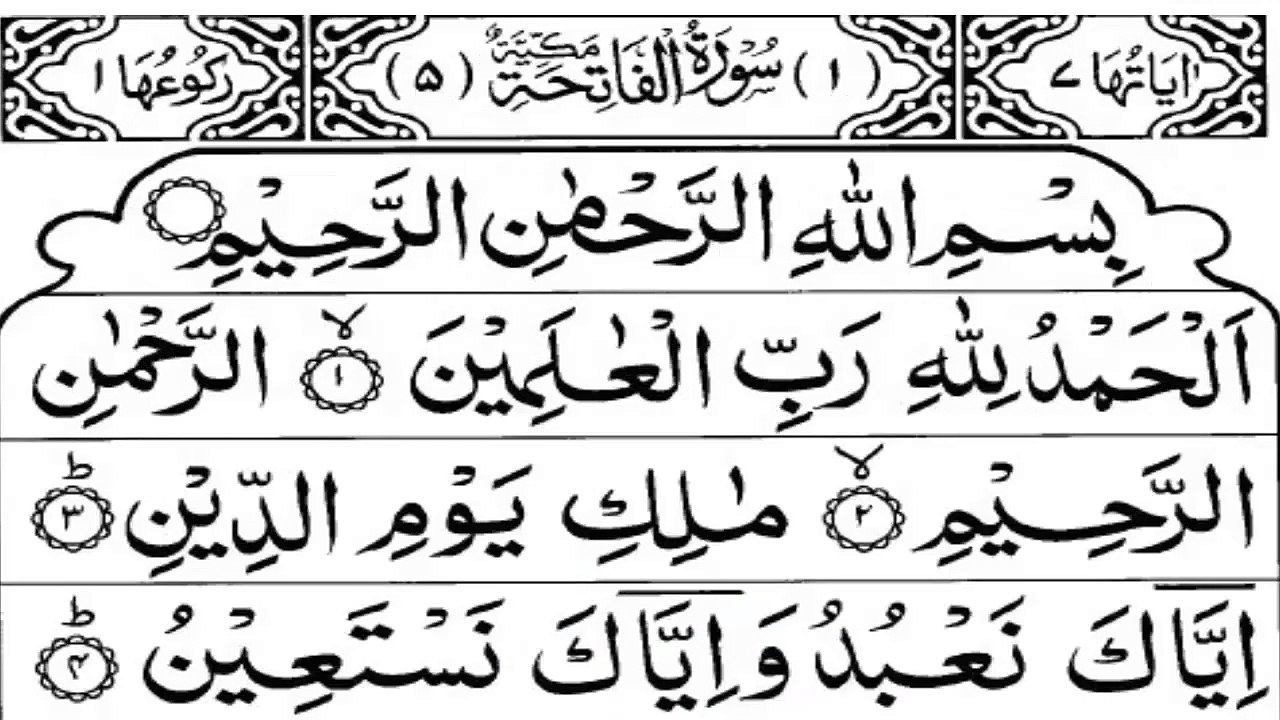 اٰيَاتُهَا ٧ (١) سُوْرَةُ الْفَاتِحَةِ مَكِّيَّةٌ (٥) رُكُوْعُهَا ١
بِسْمِ اللّٰهِ الرَّحْمٰنِ الرَّحِيْمِ
اَلْحَمْدُ لِلّٰهِ رَبِّ الْعٰلَمِيْنَ ۙ﴿١﴾ الرَّحْمٰنِ
الرَّحِيْمِ ۙ﴿٢﴾ مٰلِكِ يَوْمِ الدِّيْنِ ؕ﴿٣﴾
اِيَّاكَ نَعْبُدُ وَ اِيَّاكَ نَسْتَعِيْنُ ؕ﴿۴﴾